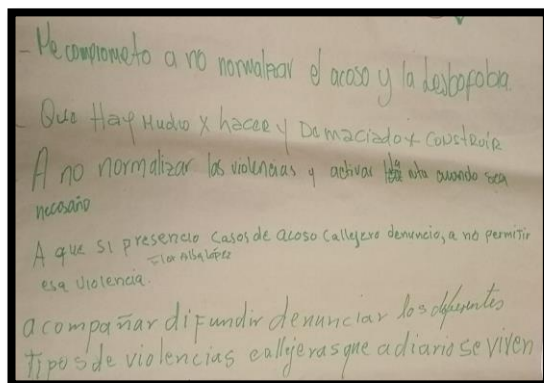 - Me comprometo a no normalizar el acoso y la lesbofobia.
- Que Hay Mucho x hacer y Demaciado x Construir
A no normalizar las violencias y activar la ruta cuando sea
necesario
A que si presencio casos de acoso callejero denuncio, a no permitir
- Flor Alba López
esa violencia.
acompañar difundir denunciar los diferentes
tipos de violencias callejeras que a diario se viven